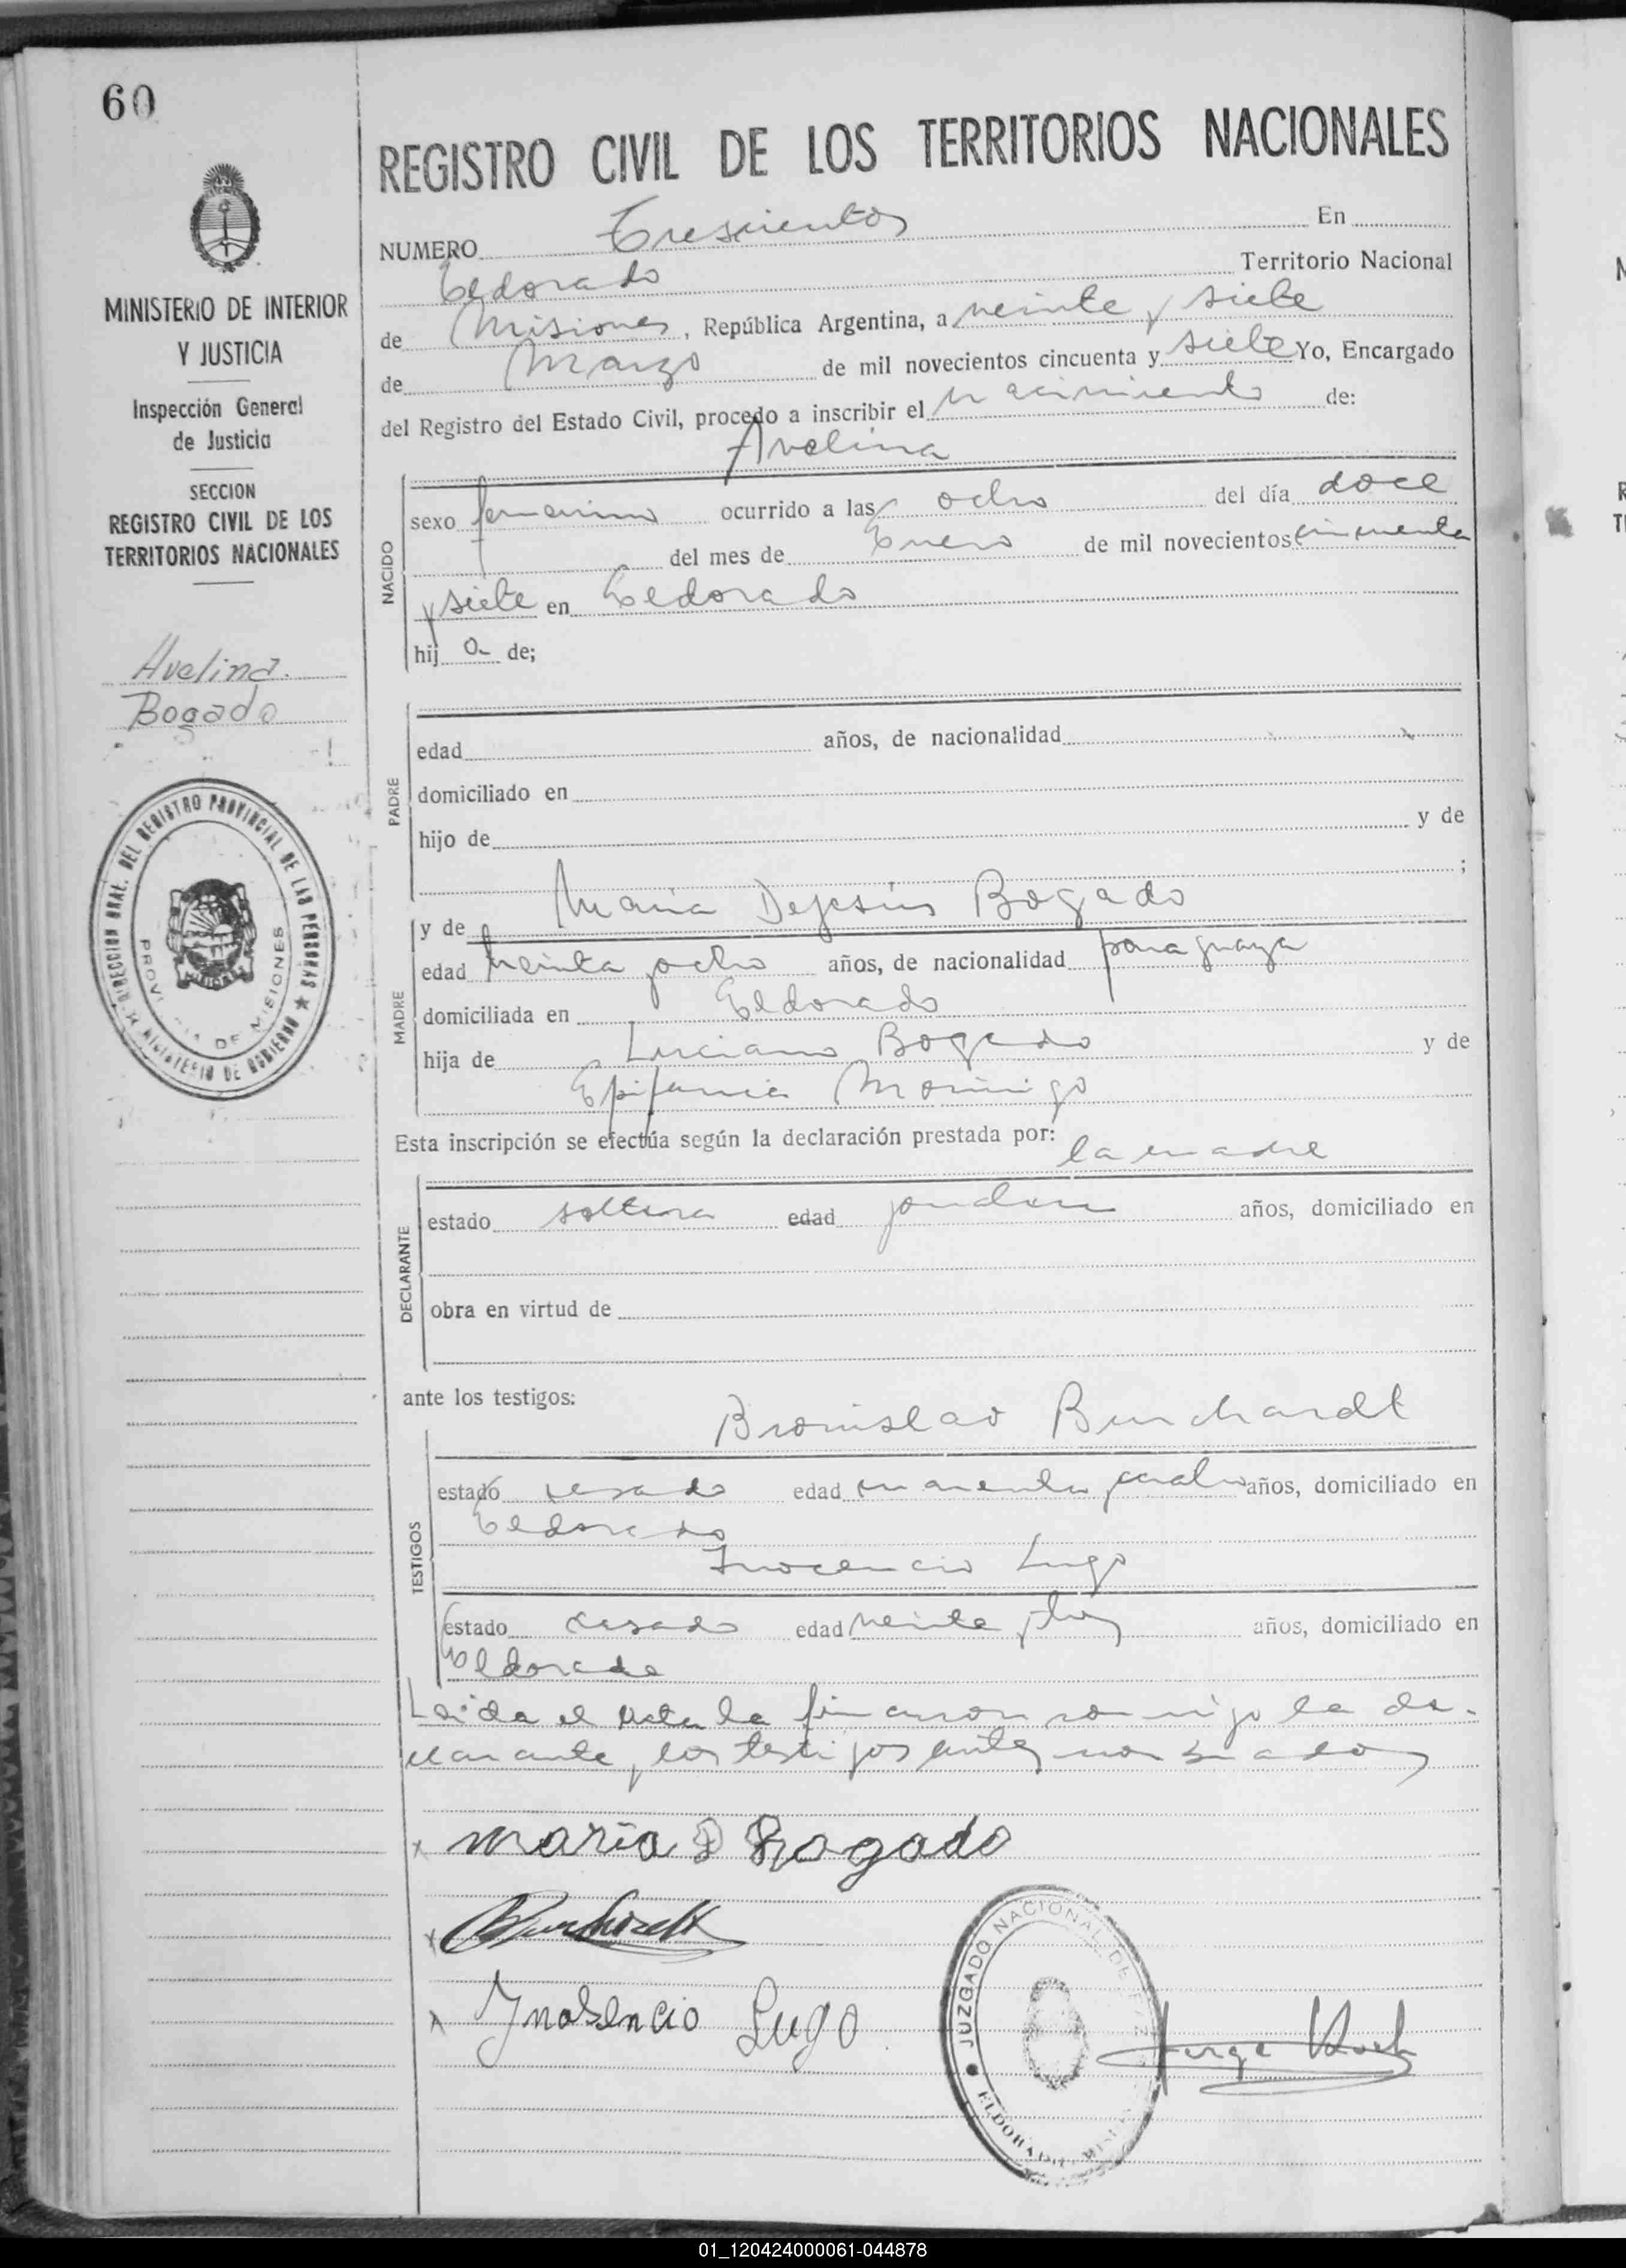 60
REGISTRO CIVIL DE LOS TERRITORIOS NACIONALES
MINISTERIO DE INTERIOR
Y JUSTICIA
Inspección General
de Justicia
SECCION
REGISTRO CIVIL DE LOS
TERRITORIOS NACIONALES
Avelina.
Bogado
DIRECCION GRAL. DEL REGISTRO PROVINCIAL DE LAS PERSONAS ★ MINISTERIO DE GOBIERNO
DE MISIONES
NUMERO Trescientos En
Eldorado Territorio Nacional
de Misiones, República Argentina, a veinte y siete
de Marzo de mil novecientos cincuenta y siete Yo, Encargado
del Registro del Estado Civil, procedo a inscribir el nacimiento de:
Avelina
NACIDO
sexo femenino ocurrido a las ocho del día doce
del mes de Enero de mil novecientos cincuenta
y siete en Eldorado
hij a de;
PADRE
edad años, de nacionalidad
domiciliado en
hijo de y de
;
MADRE
y de Maria Dejesús Bogado
edad treinta y ocho años, de nacionalidad paraguaya
domiciliada en Eldorado
hija de Luciano Bogado y de
Epifania Morinigo
Esta inscripción se efectúa según la declaración prestada por:
la madre
DECLARANTE
estado soltera edad años, domiciliado en
obra en virtud de
ante los testigos:
TESTIGOS
Bronislao Burchardt
estado casado edad cuarenta y cuatro años, domiciliado en
Eldorado
Inocencio Lugo
estado casado edad veinte y años, domiciliado en
Eldorado
Leida el acta la firmaron conmigo la de-
clarante y los testigos antes nombrados
x maria D Bogado
x Burchardt
x Inosencio Lugo
JUZGADO NACIONAL DE PAZ
ELDORADO
Jorge
01_120424000061-044878